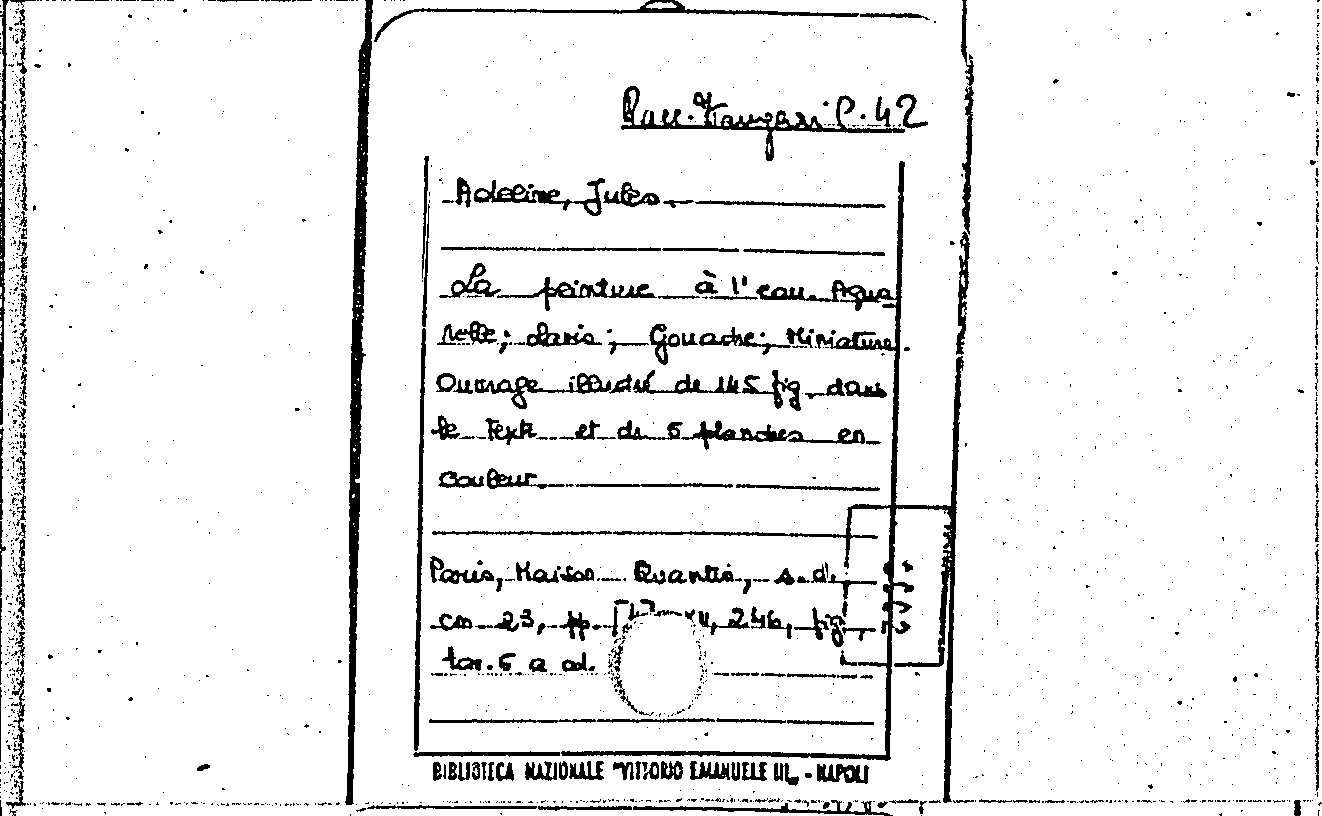 Racc. C. 42
Adeline, Jules.
La peinture à l'eau. Aqua
relle; Lavis; Gouache; Miniature.
Ouvrage illustré de 145 fig. dans
le Texte et de 5 planches en
couleur.
Paris, Maison Quantin, s.d.
cm 23, pp. 246, fig.,
tav. 5 a col.
BIBLIOTECA NAZIONALE "VITTORIO EMANUELE III„ - NAPOLI